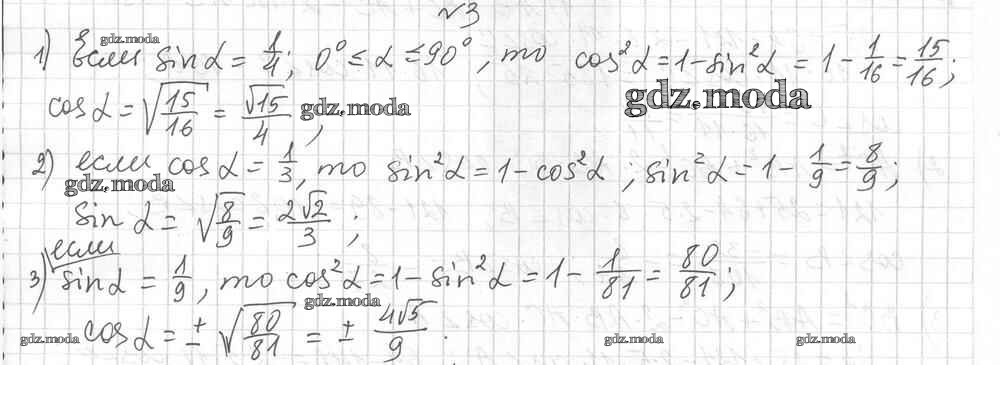 №3
gdz.moda
1) Если sin α = 1/4; 0° ≤ α ≤ 90°, то cos²α = 1 - sin²α = 1 - 1/16 = 15/16;
gdz.moda
cos α = √(15/16) = √15/4 ; gdz.moda
2) если cos α = 1/3, то sin²α = 1 - cos²α ; sin²α = 1 - 1/9 = 8/9;
gdz.moda
sin α = √(8/9) = 2√2/3 ;
если
3) sin α = 1/9, то cos²α = 1 - sin²α = 1 - 1/81 = 80/81;
gdz.moda
cos α = ± √(80/81) = ± 4√5/9 .
gdz.moda gdz.moda gdz.moda